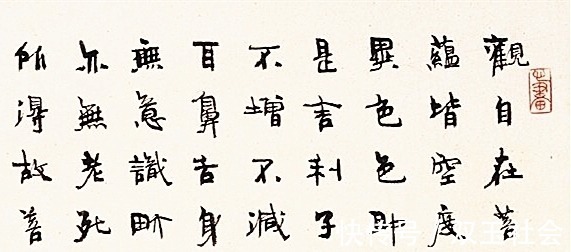 觀自在菩
蘊皆空度
異色色即
是舍利子
不增不減
耳鼻舌身
無意識界
亦無老死
所得故菩
快传号